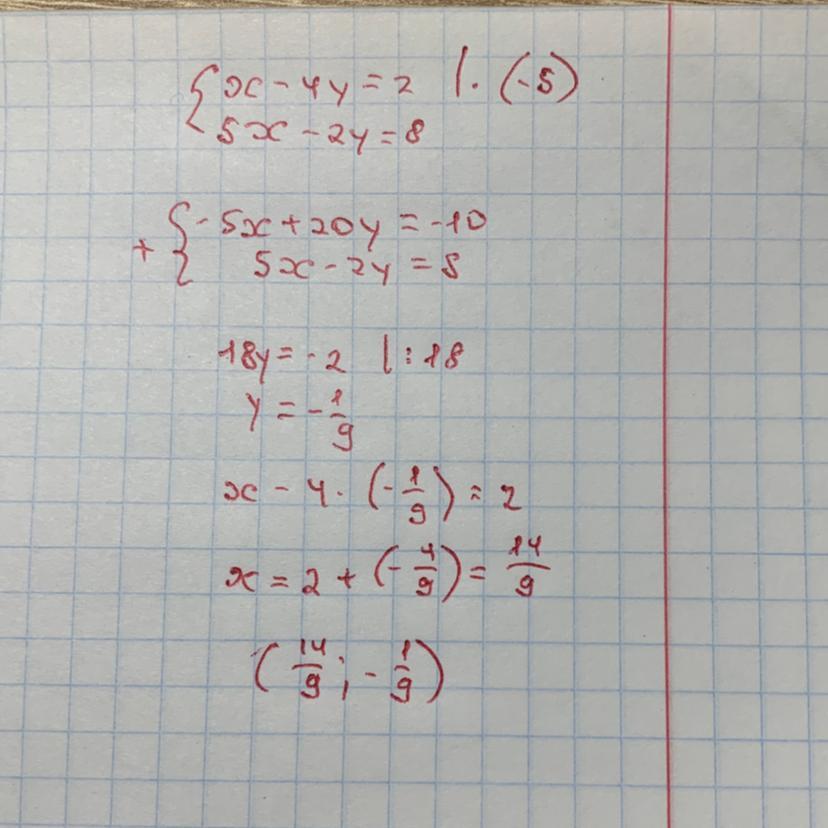 {x - 4y = 2 | · (-5)
5x - 2y = 8
+ {-5x + 20y = -10
5x - 2y = 8
18y = -2 | : 18
y = -1/9
x - 4 · (-1/9) = 2
x = 2 + (-4/9) = 14/9
(14/9 ; -1/9)